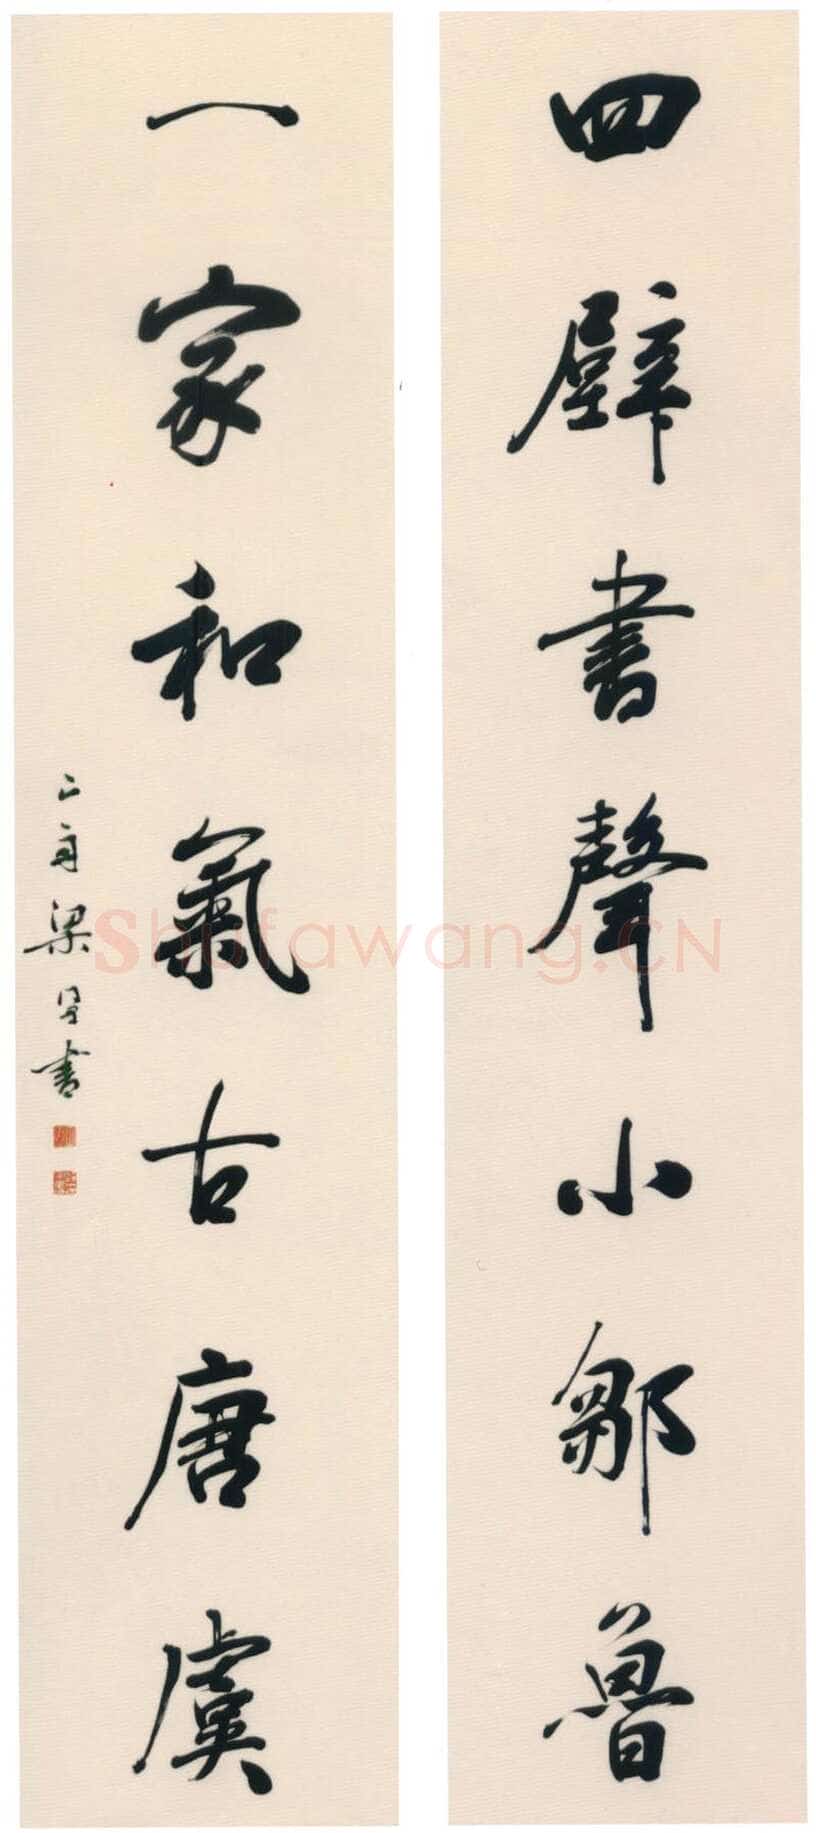 四壁書聲小鄒魯
一家和氣古唐虞
shufawang.CN